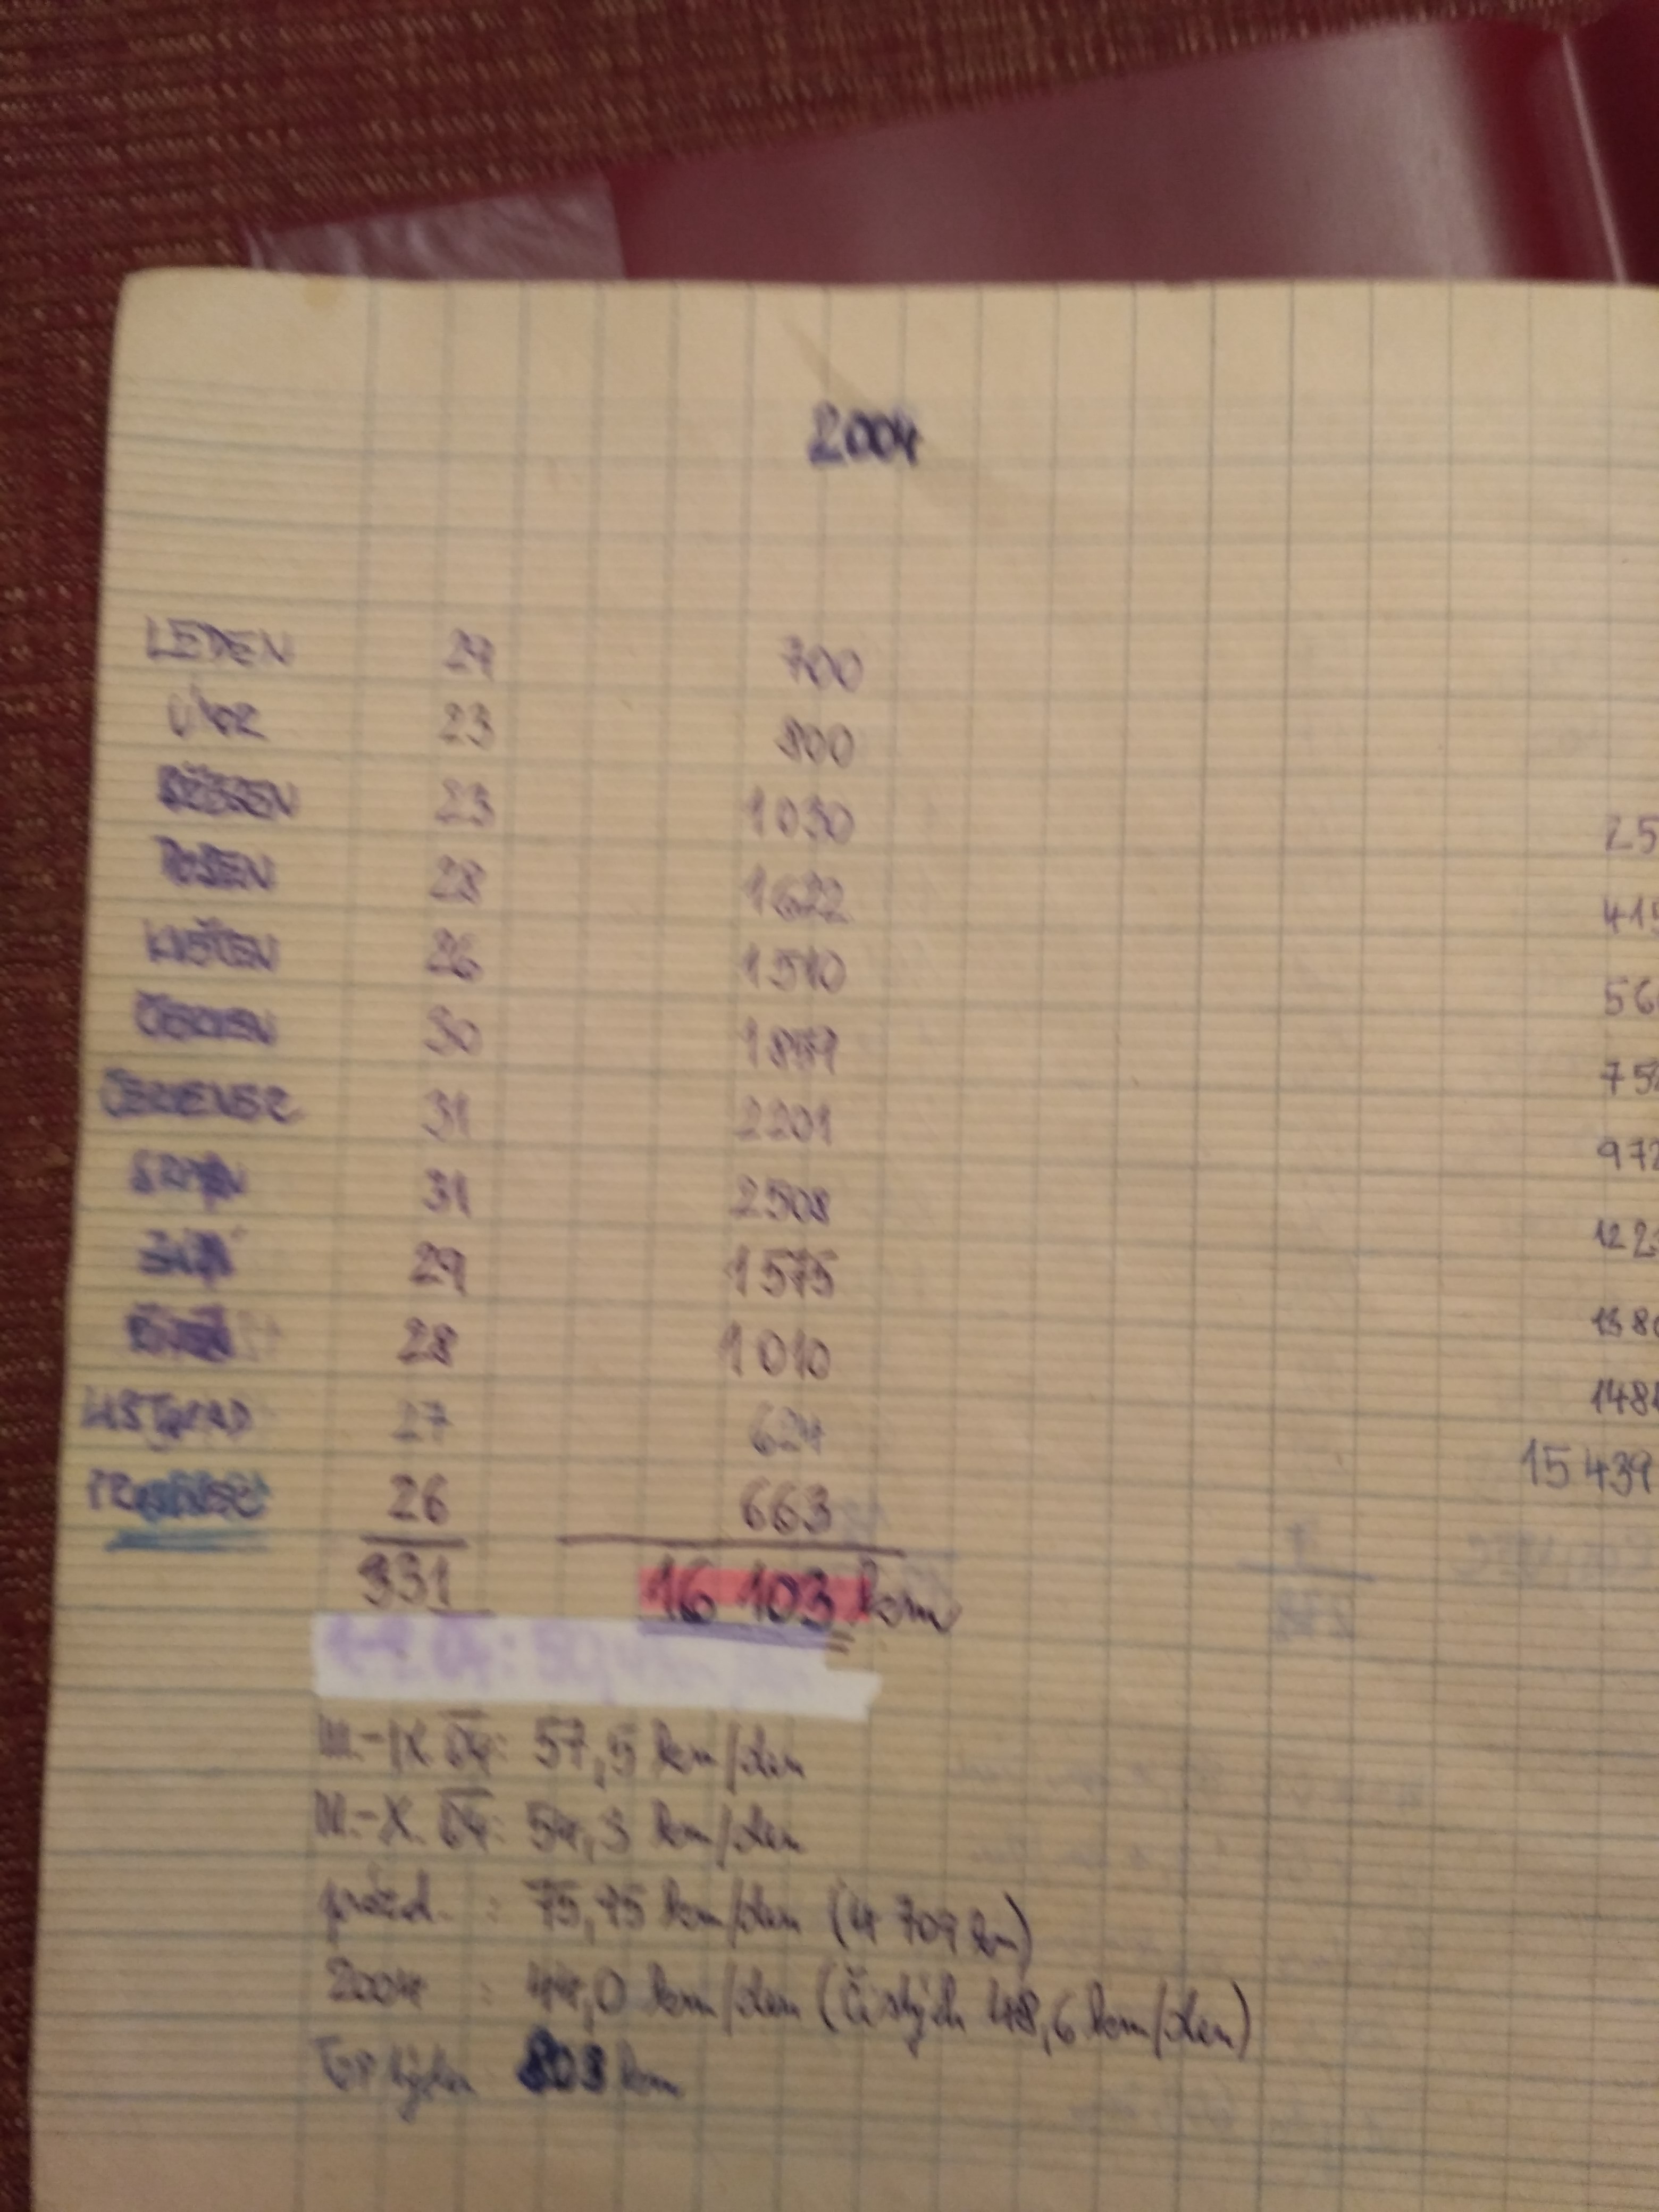 2004
LEDEN 29 700
ÚNOR 23 800
BŘEZEN 23 1030
DUBEN 28 1622
KVĚTEN 26 1510
ČERVEN 30
ČERVENEC 31 2201
SRPEN 31 2508
ZÁŘÍ 29 1575
ŘÍJEN 28 1010
LISTOPAD 27 624
PROSINEC 26 663
15439
331 16 103 km
III.-IX. 04: 57,5 km/den
III.-X. 04: 54,3 km/den
prázd. : 75,95 km/den (4 709 km)
2004 : 44,0 km/den (čistých 48,6 km/den)
Top týden 803 km